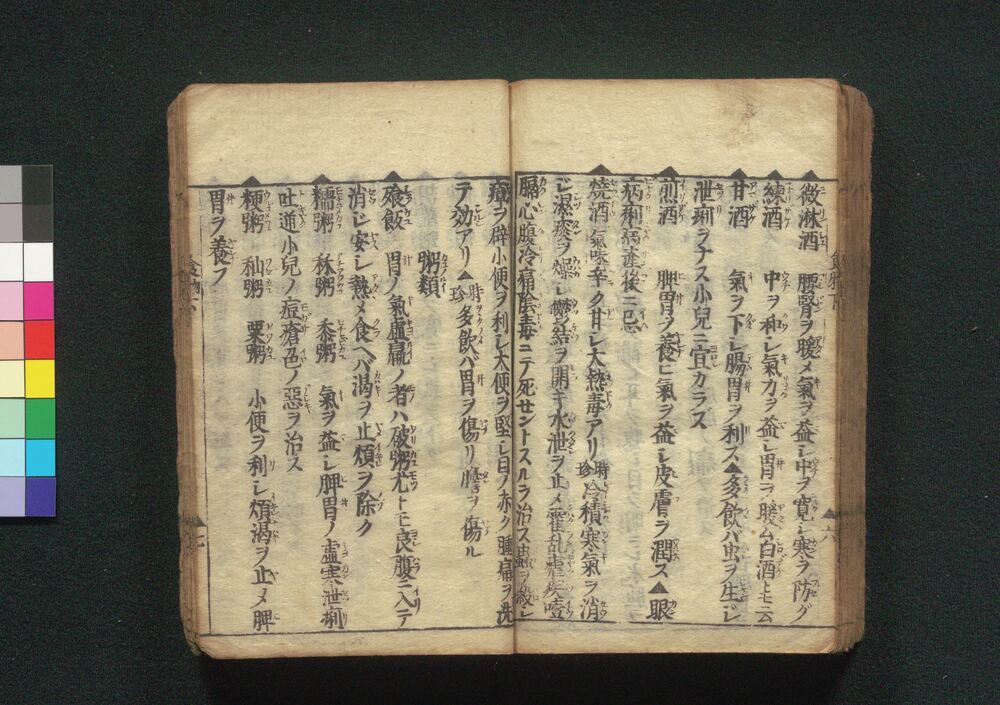 微淋酒 腰腎ヲ暖メ氣ヲ益シ中ヲ寛シ寒ヲ防グ
練酒 中ヲ和シ氣力ヲ益シ胃ヲ暖ム白酒トモ云
甘酒 氣ヲ下シ腸胃ヲ利ス▲多飲バ虫ヲ生ジ
泄痢ヲナス小兒ニ宜カラス
煎酒 脾胃ヲ養ヒ氣ヲ益シ皮膚ヲ潤ス▲眼
病痢病産後ニ忌
焼酒 氣味辛ク甘シ大熱毒アリ時珍冷積寒氣ヲ消
シ濕痰ヲ燥シ鬱結ヲ開キ水泄ヲ止メ霍乱瘧疾噎
膈心腹冷痛陰毒ニテ死セントスルヲ治ス蟲ヲ殺シ
瘴ヲ辟小便ヲ利シ大便ヲ堅シ目ノ赤ク腫痛ヲ洗
テ効アリ▲時珍多飲バ胃ヲ傷リ膽ヲ傷ル
粥類
飱飯 胃ノ氣虚羸ノ者ハ破粥尤トモ良腹ニ入テ
消シ安シ熱メ食ヘバ渇ヲ止煩ヲ除ク
糯粥 秫粥 黍粥 氣ヲ益シ脾胃ノ虚寒泄痢
吐逆小兒ノ痘瘡色ノ惡ヲ治ス
粳粥 秈粥 粟粥 小便ヲ利シ煩渇ヲ止メ脾
胃ヲ養フ